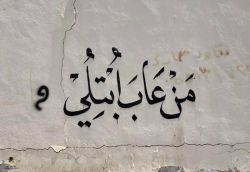 مَنْ عَابَ ابْتُلِيْ